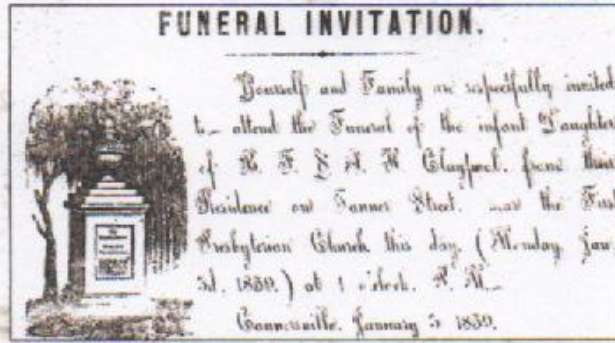 FUNERAL INVITATION.
Yourself and Family are respectfully invited
to attend the Funeral of the infant Daughter
of & A. M. Claypool, from their
Residence on Street, near the First
Presbyterian Church this day, (Monday, Jan.
3d, 1859,) at 1 o'clock, P. M.
Connersville, January 3 1859.